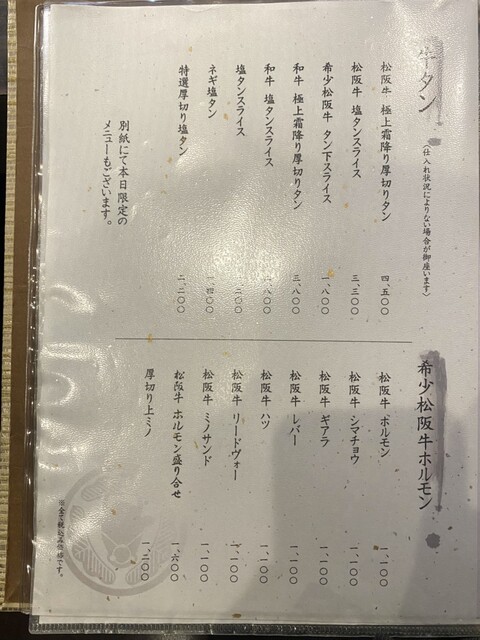 牛タン
（仕入れ状況によりない場合が御座います）
松阪牛 極上霜降り厚切りタン 四、五〇〇
松阪牛 塩タンスライス 三、三〇〇
希少松阪牛 タン下スライス 一、八〇〇
和牛 極上霜降り厚切りタン 三、八〇〇
和牛 塩タンスライス 一、八〇〇
塩タンスライス 一、二〇〇
ネギ塩タン 一、四〇〇
特選厚切り塩タン 二、二〇〇
別紙にて本日限定の
メニューもございます。
希少松阪牛ホルモン
松阪牛 ホルモン 一、一〇〇
松阪牛 シマチョウ 一、一〇〇
松阪牛 ギアラ 一、一〇〇
松阪牛 レバー 一、一〇〇
松阪牛 ハツ 一、一〇〇
松阪牛 リードヴォー 一、一〇〇
松阪牛 ミノサンド 一、一〇〇
松阪牛 ホルモン盛り合せ 一、六〇〇
厚切り上ミノ 一、二〇〇
※全て税込み価格です。